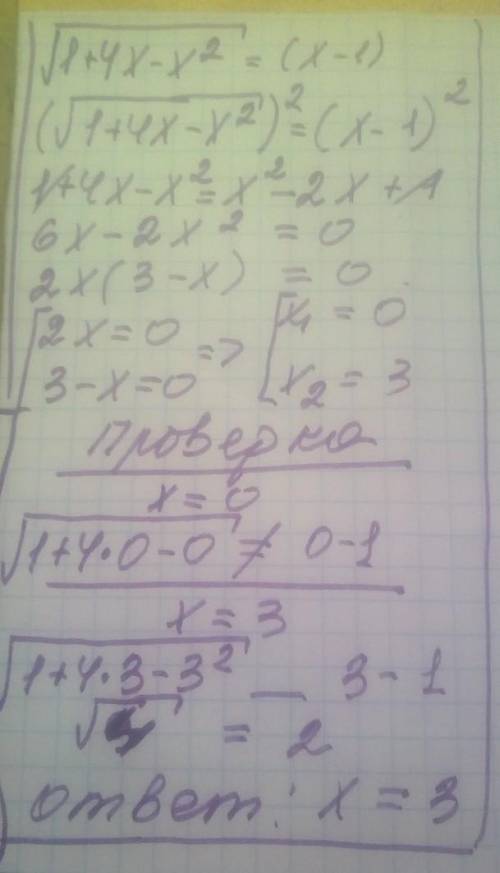 √(1+4x-x²) = (x-1)
(√(1+4x-x²))² = (x-1)²
1+4x-x² = x²-2x+1
6x-2x² = 0
2x(3-x) = 0
[2x=0 => [x₁ = 0
3-x=0 x₂ = 3
Проверка
x=0
√(1+4·0-0) ≠ 0-1
x=3
√(1+4·3-3²) _ 3-1
√4 = 2
ответ: x=3